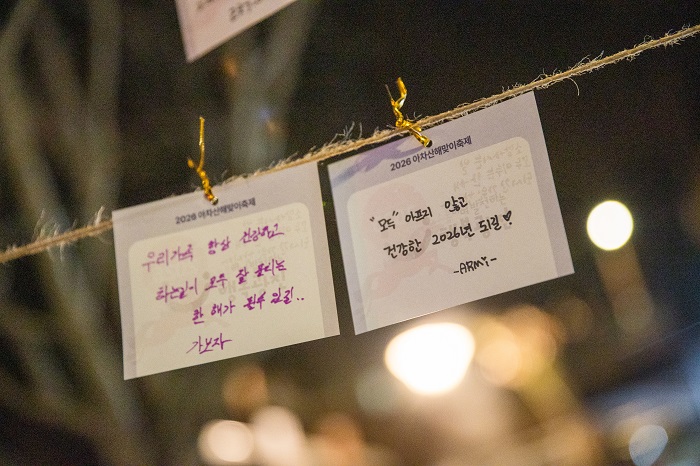 2026 아차산해맞이축제
우리가족 항상 건강하고
하는일이 모두 잘 풀리는
한 해가 될
가보자
2026 아차산해맞이축제
"모두" 아프지 않고
건강한 2026년 되길♥
-ARMi-